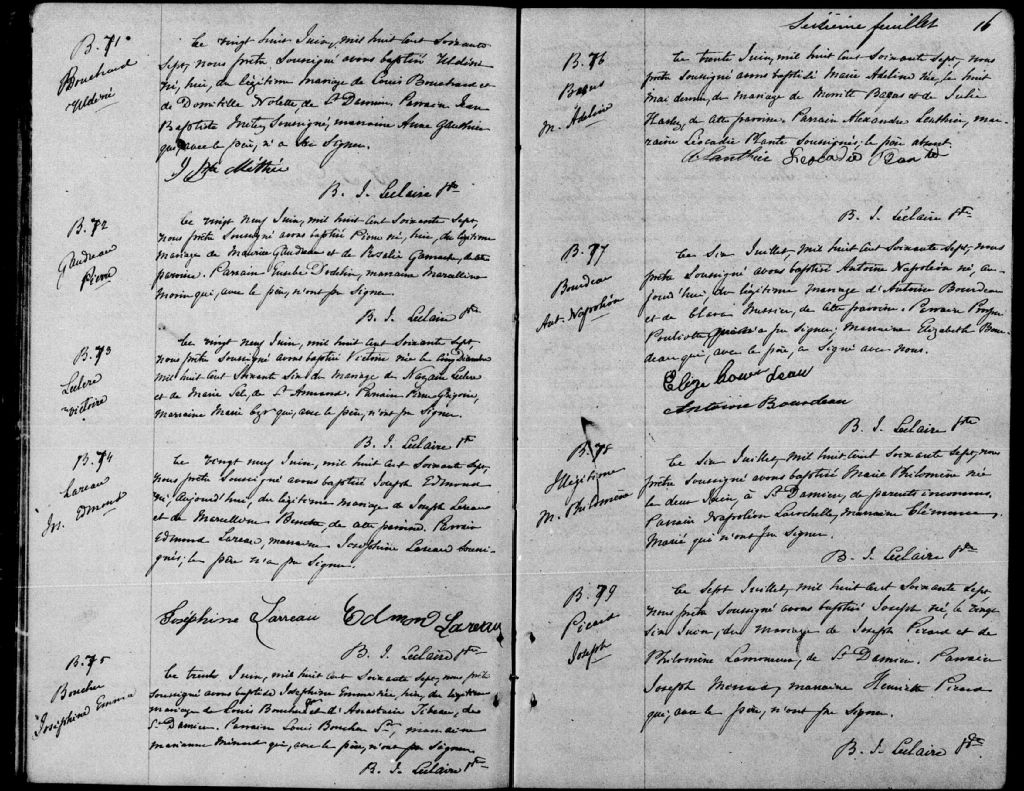 B. 71
Bouchard
Uldéric
Le vingt huit Juin, mil huit cent soixante
sept, nous prêtre soussigné avons baptisé Uldéric
né, hier, du légitime mariage de Louis Bouchard et
de Domitille Nolette, de St Damien, Parrain Jean
Baptiste Metey, soussigné, marraine Anne Gauthier
qui, avec le père, n'a su signer.
J Bte Méthié
B. J. Leclaire Ptre
B. 72
Gaudreau
Pierre
Le vingt neuf Juin, mil huit cent soixante sept,
nous prêtre soussigné avons baptisé Pierre né, hier, du légitime
mariage de Maurice Gaudreau et de Rosalie Gamache, de cette
paroisse. Parrain Eusèbe Dodelin, marraine Marcelline
Morin qui, avec le père, n'ont su signer.
B. J. Leclaire Ptre
B. 73
Leclerc
Victoire
Le vingt neuf Juin, mil huit cent soixante sept,
nous prêtre soussigné avons baptisé Victoire née le cinq Décembre
mil huit cent soixante six du mariage de Nazaire Leclerc
et de Marie de St Armand. Parrain Pierre Grégoire,
marraine Marie qui, avec le père, n'ont su signer.
B. J. Leclaire Ptre
B. 74
Lareau
Js. Edmond
Le vingt neuf Juin, mil huit cent soixante sept,
nous prêtre soussigné avons baptisé Joseph Edmond
né, aujourd'hui, du légitime mariage de Joseph Lareau
et de Marcelline Benoite, de cette paroisse. Parrain
Edmond Lareau, marraine Josephine Lareau soussi-
gnés; le père n'a su signer.
Joséphine Larreau Edmond Lareau
B. J. Leclaire Ptre
B. 75
Boucher
Joséphine Emma
Le trente Juin, mil huit cent soixante sept, nous prêtre
soussigné avons baptisé Josephine Emma née, hier, du légitime
mariage de Louis Boucher et d'Anastasie Tibeau, de
St Damien. Parrain Louis Boucher Sr, marraine
Marianne Ménard qui, avec le père, n'ont su signer.
B. J. Leclaire Ptre
Seizième feuillet 16
B. 76
Bagus
M. Adeline
Le trente Juin, mil huit cent soixante sept, nous
prêtre soussigné avons baptisé Marie Adeline née, le huit
Mai dernier, du mariage de Bagus et de Julie
de cette paroisse. Parrain Alexandre Lanthier, mar-
raine Léocadie Plante soussignés; le père absent.
A Lanthier Leocadie Plante
B. J. Leclaire Ptre
B. 77
Bourdeau
Ant. Napoléon
Le six Juillet, mil huit cent soixante sept, nous
prêtre soussigné avons baptisé Antoine Napoléon né, au-
jourd'hui, du légitime mariage d'Antoine Bourdeau
et de Clara Messier, de cette paroisse. Parrain Prosper
Pouliotte qui n'a su signer; marraine Elizabeth Bour-
deau qui, avec le père, a signé avec nous.
Elize bourdeau
Antoine Bourdeau
B. J. Leclaire Ptre
B. 78
Illégitime
M. Philomène
Le six Juillet, mil huit cent soixante sept, nous
prêtre soussigné avons baptisé Marie Philomène née
le deux Juin, à St Damien, de parents inconnus.
Parrain Napoléon Larochelle, marraine Clémence
Marié qui n'ont su signer.
B. J. Leclaire Ptre
B. 79
Picard
Joseph
Le sept Juillet, mil huit cent soixante sept,
nous prêtre soussigné avons baptisé Joseph né, le vingt
six Juin, du mariage de Joseph Picard et de
Philomène Lamoureux, de St Damien. Parrain
Joseph marraine Henriette Picard
qui, avec le père, n'ont su signer.
B. J. Leclaire Ptre